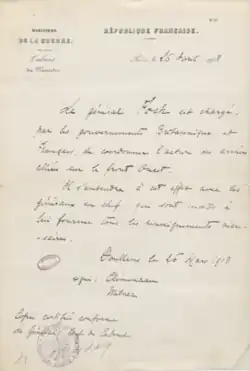 MINISTÈRE
DE LA GUERRE
RÉPUBLIQUE FRANÇAISE.
Cabinet
du Ministre
Le général Foch est chargé
par les gouvernements Britannique et
Français de coordonner l'action des armées
alliées sur le front Ouest.
Il s'entendra à cet effet avec les
généraux en chef, qui sont invités à
lui fournir tous les renseignements néces-
saires.
Doullens le 26 Mars 1918
signé : Clemenceau
Milner
Copie certifiée conforme